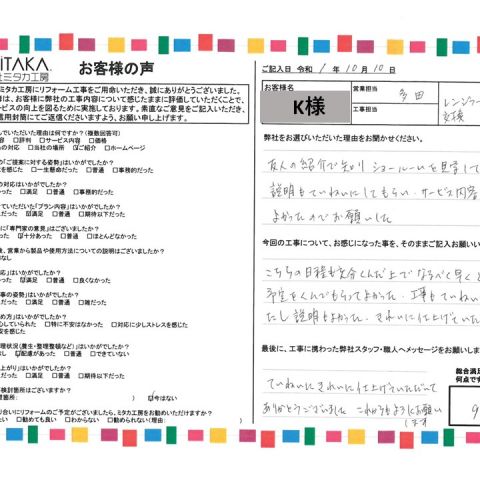 ITAKA
社ミタカ工房
お客様の声
ミタカ工房にリフォーム工事をご用命いただき、誠にありがとうございました。
は、お客様に弊社の工事内容について感じたままに評価していただくことで、
ービスの向上を図るために実施しております。率直なご意見をご記入いただき、
信用封筒にてご返信くださいますよう、お願い申し上げます。
していただいた理由は何ですか?(複数回答可)
□評判 □サービス内容 □価格
の対応 □当社の場所 ご紹介 □ホームページ
がご提案に対する姿勢」はいかがでしたか?
を感じた □一生懸命だった □普通 □事務的だった
の対応はいかがでしたか?
だった 満足 □普通 □事務的だった
ていただいた「プラン内容」はいかがでしたか?
だった 満足 □普通 □期待以下だった
に「専門家の意見」はございましたか?
った 十分あった □普通 □ほとんどなかった
後、営業から製品や使用方法についての説明はございましたか?
なし
応」はいかがでしたか?
った 満足 □普通 □良くなかった
事の姿勢」はいかがでしたか?
だった 満足 □普通 □雑だった
め方」はいかがでしたか?
心していられた □特に不安はなかった □対応に少しストレスを感じた
安を感じた
理状況(養生・整理整頓など)」はいかがでしたか?
なし 配慮があった □普通 □できていない
上がり」はいかがでしたか?
だった 満足 □普通 □期待以下だった
検討箇所はございますか?
箇所: ) 今はない
り合いにリフォームのご予定がございましたら、ミタカ工房をお勧めいただけますか?
たい □勧めても良い □わからない □勧められない(理由: )
ご記入日 令和 1 年 10 月 10 日
お客様名
K様
営業担当
多田
工事担当
レンジフー
交換
弊社をお選びいただいた理由をお聞かせください。
友人の紹介で知り ショールームを見学して
説明もていねいにしてもらい、サービス内容
よかったのでお願いした
今回の工事について、お感じになった事を、そのままご記入お願いい
こちらの日程も充分くんだ上で なるべく早くと
予定をくんでもらってよかった。工事もていねい
だし 説明もよかった。きれいに仕上げていた
最後に、工事に携わった弊社スタッフ・職人へメッセージをお願いしま
ていねいに きれいに 仕上げていただいて
ありがとうございました これからもよろしくお願い
します
総合満足
何点です
9